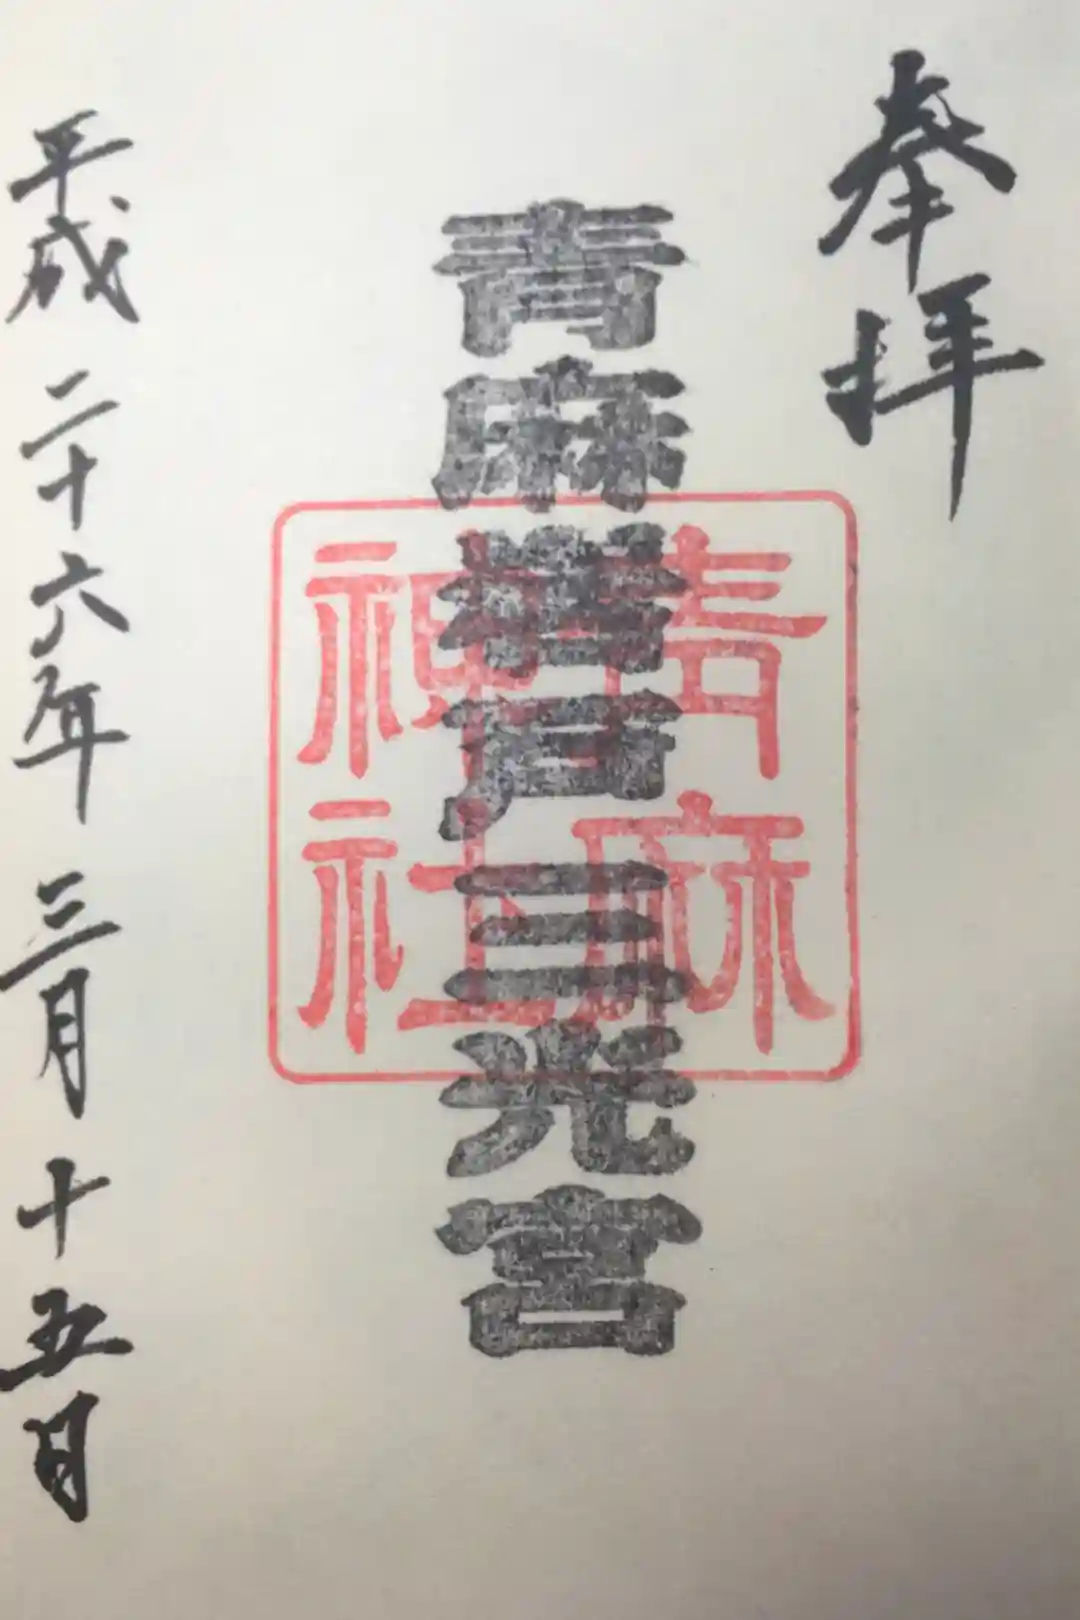 奉拝
青麻戸三光宮
青麻
神社
平成二十六年三月十五日